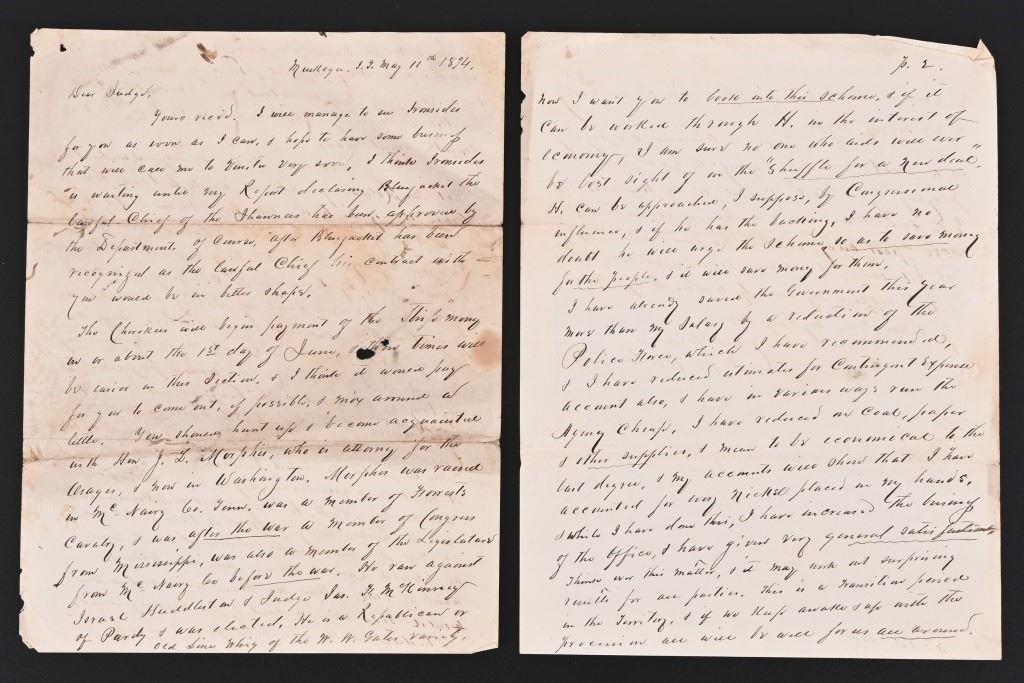 Muskogee. I.T. May 11th 1894.
Dear Judge,
Yours recd. I will manage to see Ironsides
for you as soon as I can, & hope to have some business
that will call me to Vinita very soon, I think Ironsides
is waiting until my Report declaring Bluejacket the
lawful Chief of the Shawnees has been approved by
the Department. of Course, after Bluejacket has been
recognized as the lawful Chief his contract with
you would be in better shape.
The Cherokees will begin payment of the "Strip" money
on or about the 1st day of June, & then times will
be easier in this Section, & I think it would pay
for you to come out, if possible, & mix around a
little. You should hunt up & become acquainted
with Hon J. L. Morphis, who is attorney for the
Osages, & now in Washington. Morphis was raised
in McNairy Co. Tenn. was a member of Forrests
Cavalry, & was after the war a member of Congress
from Mississippi, was also a member of the Legislature
from McNairy Co before the war. He ran against
Israel Huddleston & Judge Jas. F. McKinney
of Purdy & was elected. He is a Republican or
old Line Whig of the W. W. Gates variety.
P. 2.
now I want you to look into this scheme, & if it
can be worked through H. in the interest of
economy, I am sure no one who aids will ever
be lost sight of in the "Shuffle for a New deal".
H. can be approached, I suppose, by Congressional
influence, & if he has the backing, I have no
doubt he will urge the scheme so as to save money
for the people, & it will save money for them.
I have already saved the Government this year
more than my Salary by a reduction of the
Police Force, which I have recommended,
& I have reduced estimates for Contingent Expense
account also, & have in various ways run the
Agency Cheap. I have reduced on Coal, paper
& other supplies, & mean to be economical to the
last degree, & my accounts will show that I have
accounted for every Nickel placed in my hands,
& while I have done this, I have increased the business
of the Office, & have given very general satisfaction.
Think over this matter, & it may work out surprising
results for all parties. This is a transition period
in the Territory, & if we keep awake & up with the
procession all will be well for us all around.